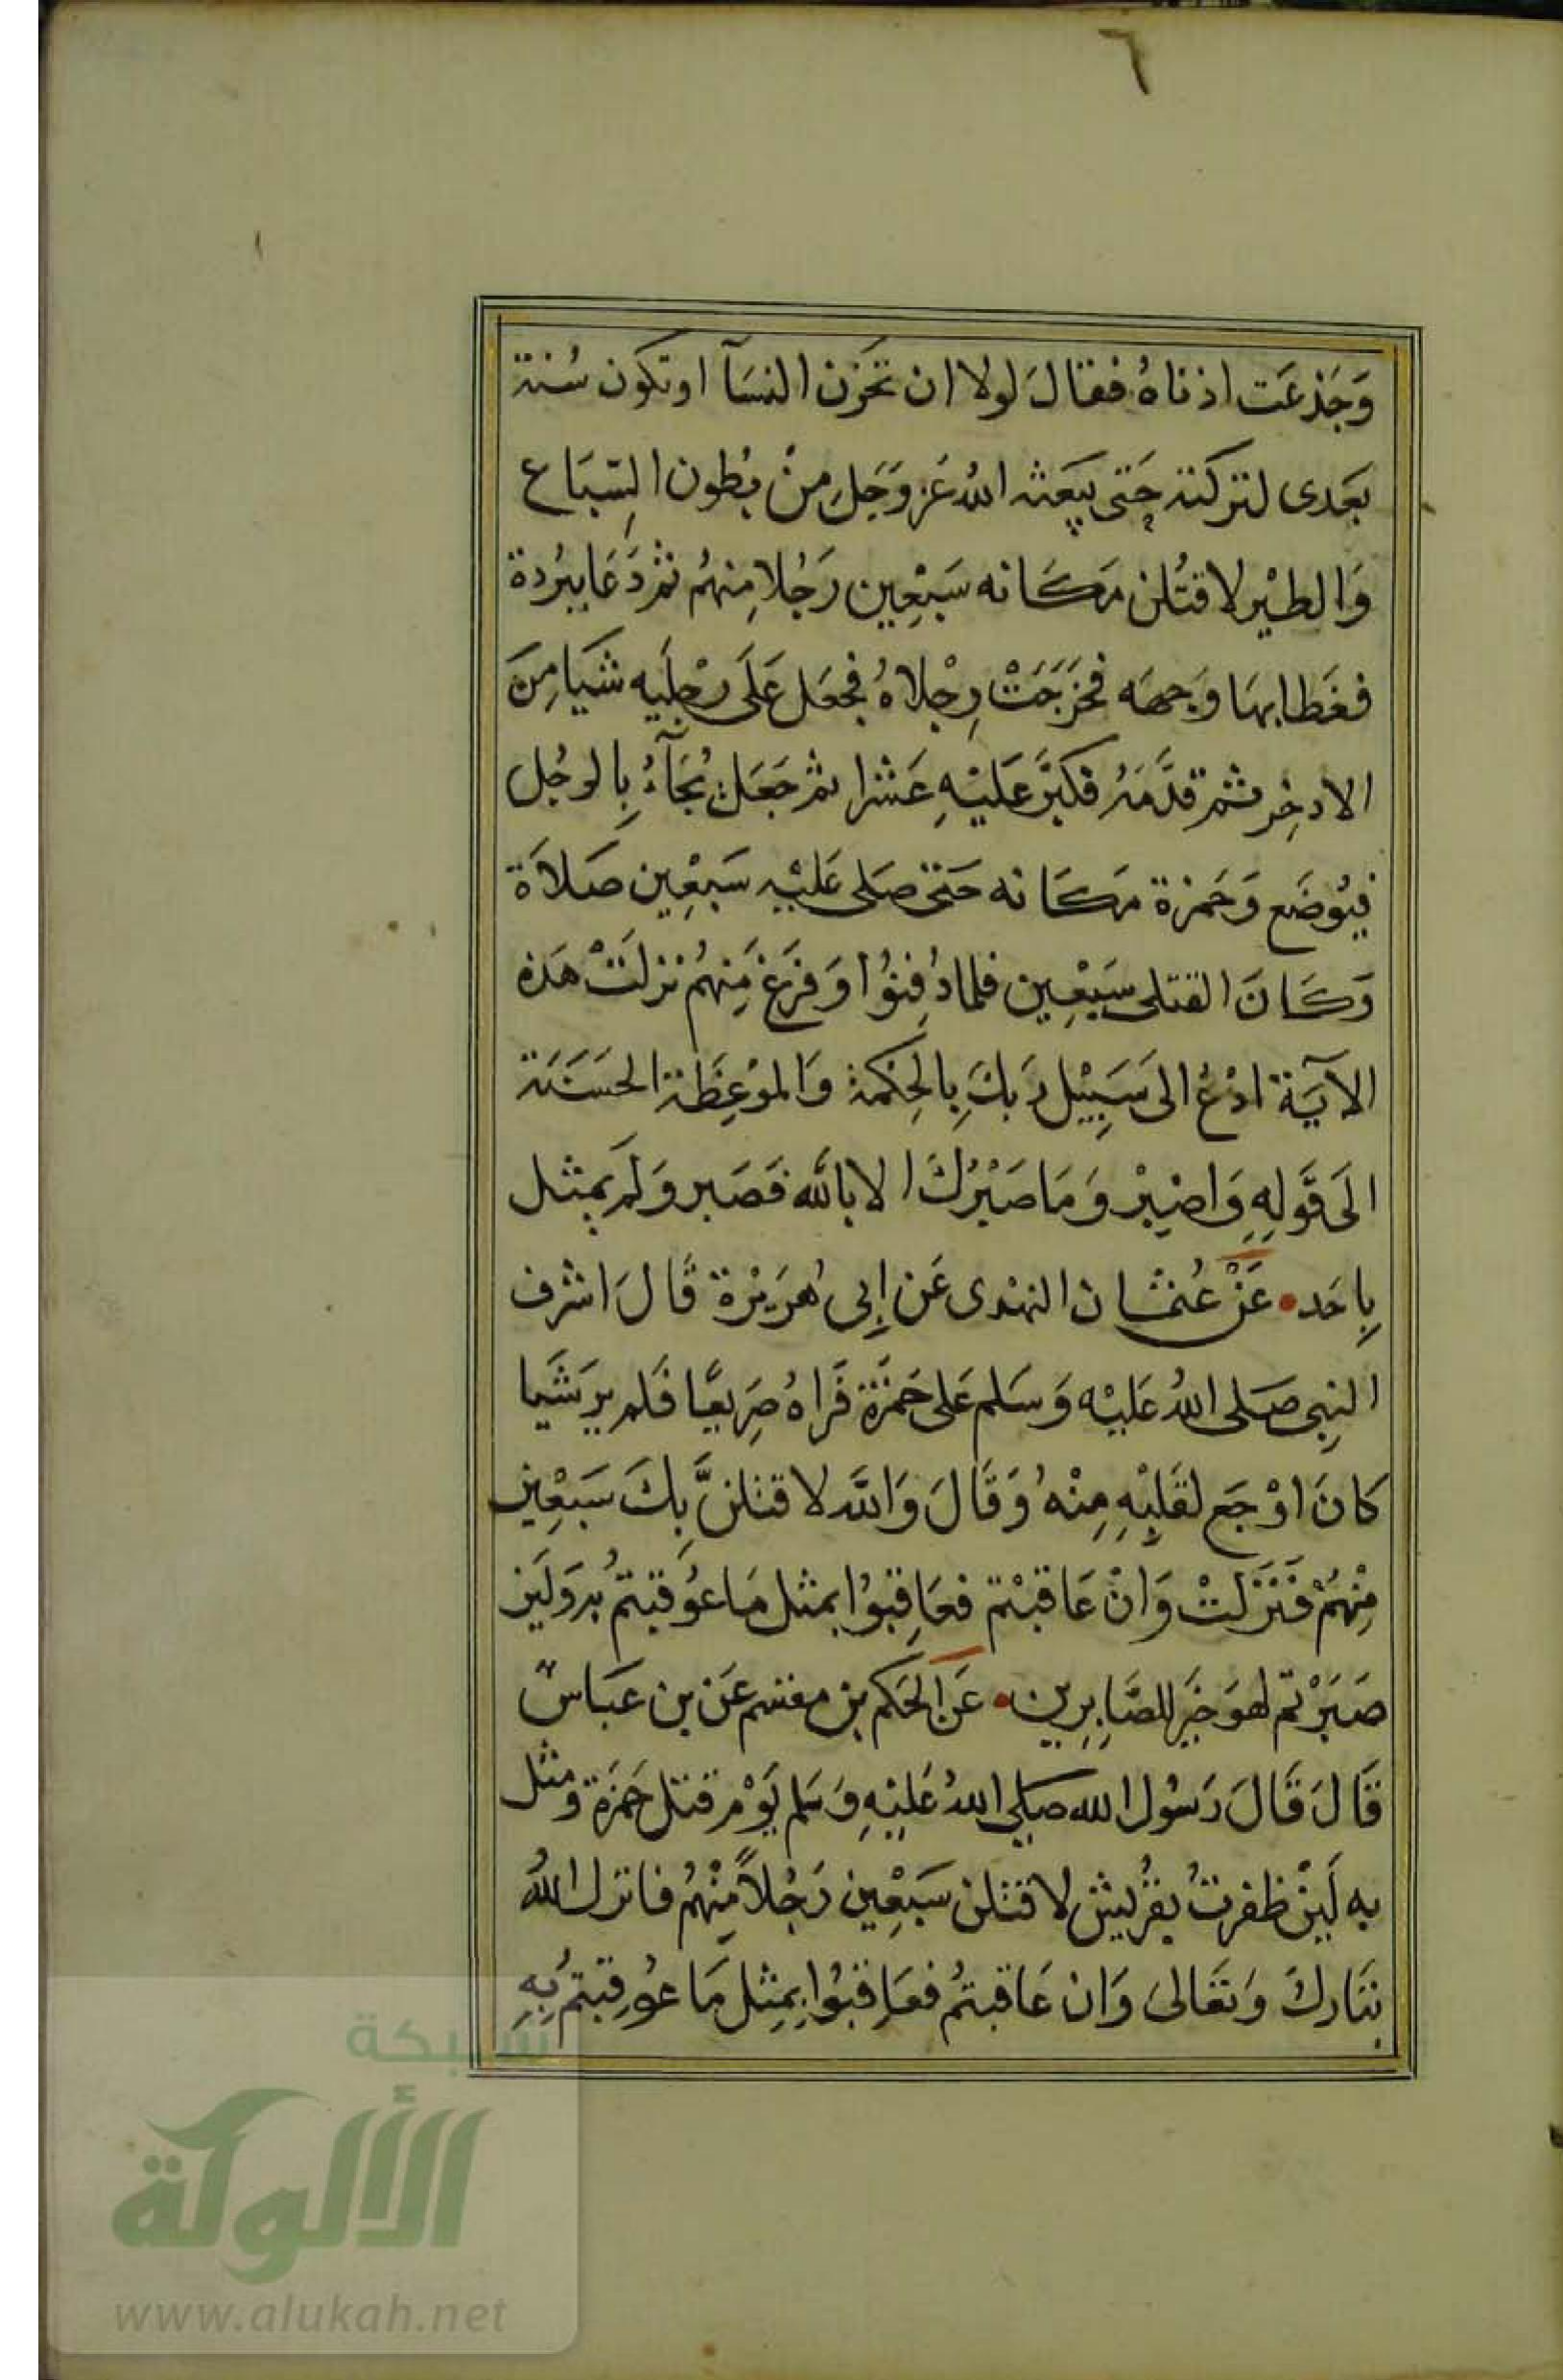 ٦
وَجَذعَت اذناهُ فقالَ لولا ان تحزن النسآ او تكون سُنة
بَعَدى لتركته حَتى يبعَثه اللهُ عَز وَجَل مِنْ بُطون السِّبَاع
وَالطيْر لاقتُلن مَكَانه سَبْعِين رَجُلا مِنهُم ثم دَعَا ببُردة
فغَطا بهَا وَجهَه فخرَجَتْ رِجْلاهُ فجعَل عَلَى رِجْليه شيَا مِنَ
الادخِر ثم قدَّمَهُ فكبَّر عَليْهِ عَشرا ثم جَعَل يُجَآءُ بِالرجُل
فيُوضَع وَحَمزة مَكَانه حَتى صَلى عَليْه سَبْعِين صَلاَة
وَكَانَ القتلى سَبْعِين فلما دُفِنُوا وَفرَغ مِنهُم نزلَتْ هَذه
الآيَة ادْعُ الى سَبِيْل رَبكَ بِالحِكْمة وَالموْعِظة الحَسَنَة
الَى قَولِهِ وَاصْبِرْ وَمَا صَبْرُكَ الا باللَّه فَصَبر وَلَم يمثل
بِاحَد • عَنْ عُثمَان النهْدى عَن اَبِى هُرَيْرة قَالَ اشرف
النبِى صَلى اللهُ عَليْه وَسَلم عَلى حَمزَة فَراهُ صَرِيعًا فَلم ير شَيا
كانَ اوْجَع لقَلبِهِ مِنْهُ وَقَالَ وَاللَّه لاقتلنَّ بِكَ سَبَعْين
مِنْهُمْ فَنَزَلَتْ وَانْ عَاقبْتم فعَاقِبوُا بمثل مَا عوُقبتمُ به وَلَين
صَبَرْتم لهوَ خَير للصَّابِرِين • عَن الحَكم بن مقسم عَن بن عَبَاس
قَالَ قَالَ رَسُول الله صَلى اللهُ عَليْهِ وَسَلم يَوْم قتل حَمزَة وَمثل
به لَيِنْ ظفرتُ بقُريش لاقتلن سَبَعْين رَجُلاً مِنْهُم فانزل اللهُ
تبَارك وَتعَالىَ وَان عَاقبتمُ فعَاقِبُوا بِمِثل مَا عوُقِبتمُ بِهِ
شبكة
الألوكة
www.alukah.net